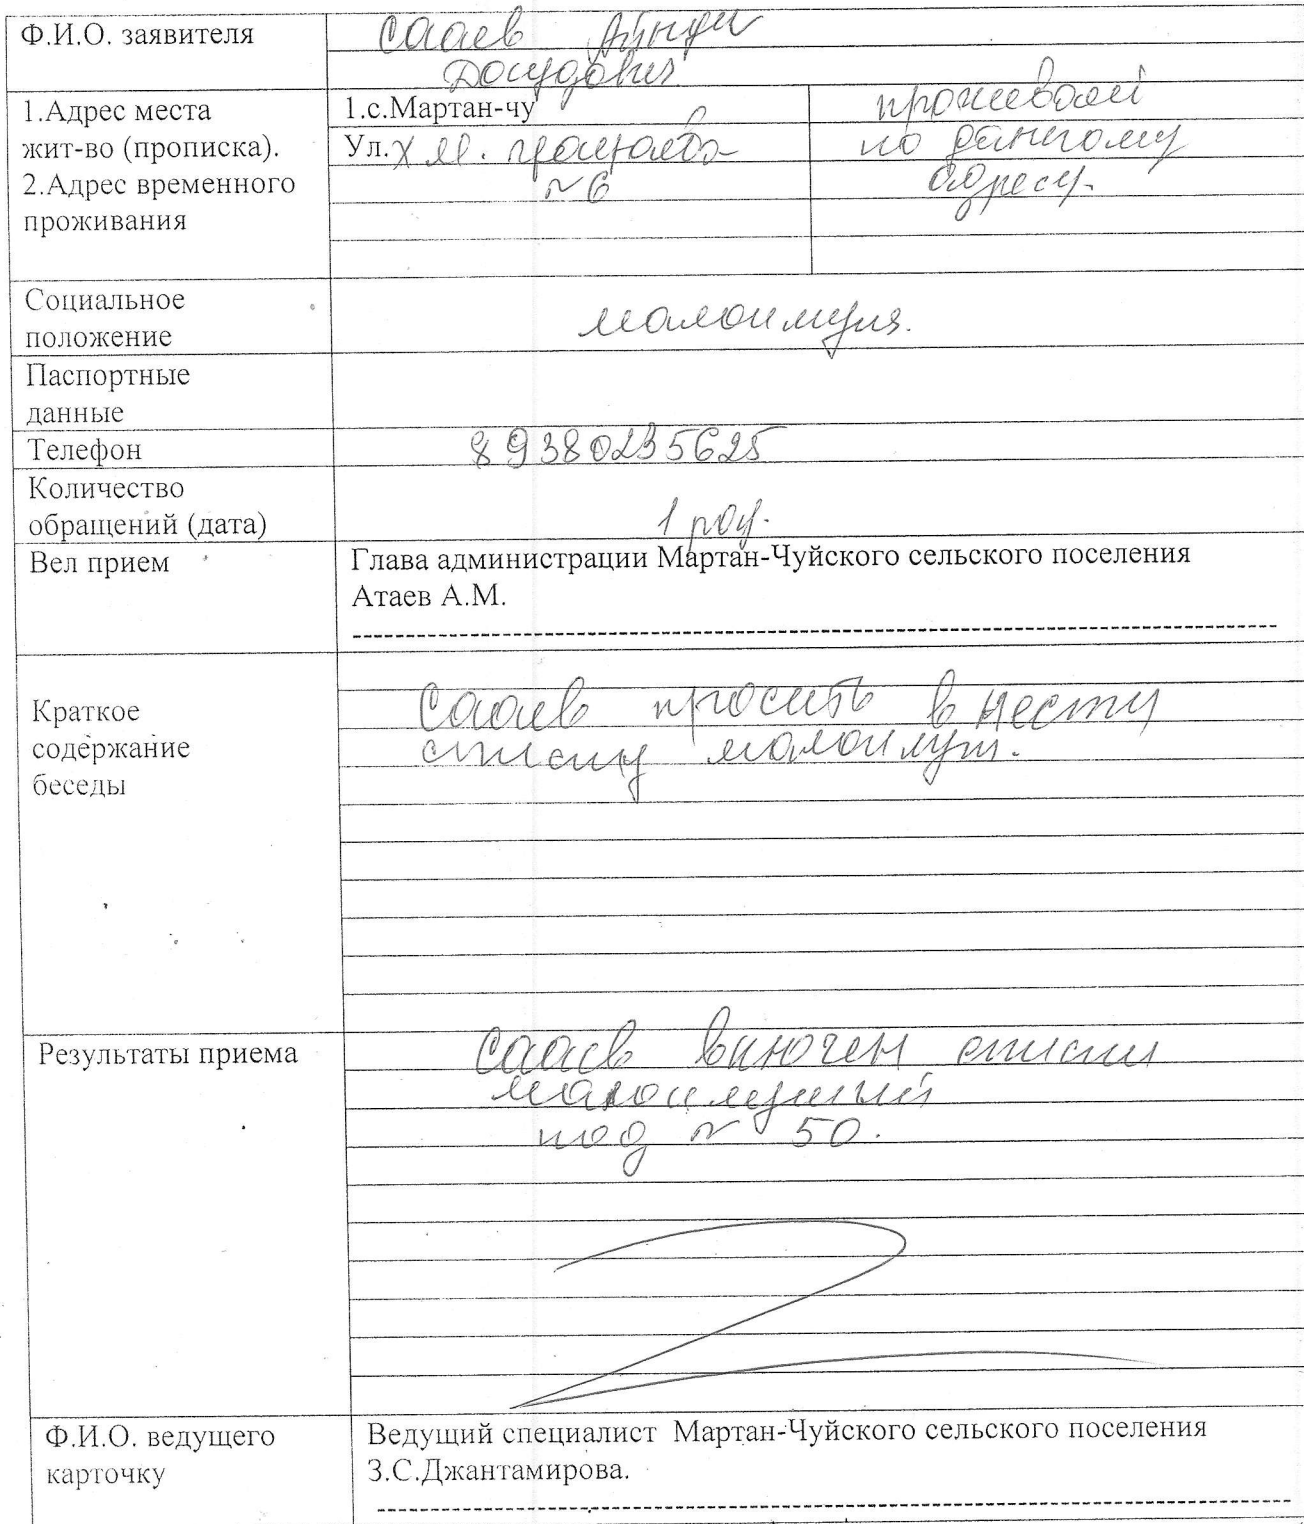 Ф.И.О. заявителя
Сааев
1.Адрес места
жит-во (прописка).
2.Адрес временного
проживания
1.с.Мартан-чу
Ул. Х
№ 6
по данному
адресу.
Социальное
положение
Паспортные
данные
Телефон
89380235625
Количество
обращений (дата)
1 раз.
Вел прием
Глава администрации Мартан-Чуйского сельского поселения
Атаев А.М.
Краткое
содержание
беседы
Сааев просить внести
списку малоимущ.
Результаты приема
Сааев включен списки
малоимущий
под № 50.
Ф.И.О. ведущего
карточку
Ведущий специалист Мартан-Чуйского сельского поселения
З.С.Джантамирова.